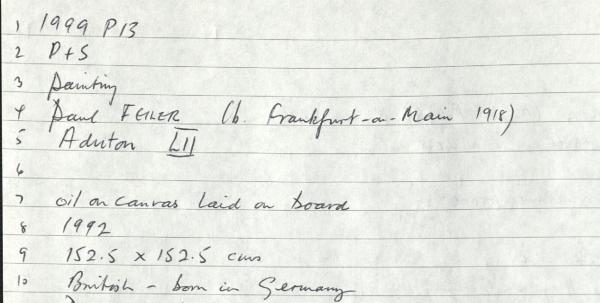 1 1999 P13
2 P+S
3 painting
4 Paul FEILER (b. Frankfurt-on-Main 1918)
5 Aduton LII
6
7 oil on canvas laid on board
8 1992
9 152.5 x 152.5 cms
10 British - born in Germany